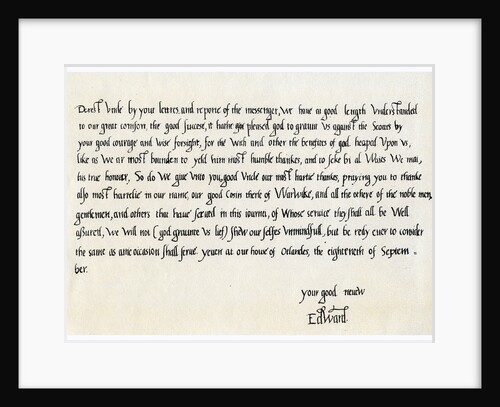 Derest Uncle by your letters and reporte of the messenger, we have at good length understanded
to our great comfort, the good succese, it hathe pleased god to graunt us against the Scottes by
your good courage and wise forsight, for the wich and other the benefites of god heaped upon us,
like as we ar most bounden to yeld him most humble thankes, and to seke bi al waies we mai,
his true honour, So do we give unto you, good Uncle our most hartie thankes, praying you to thanke
also most hartelie in our name, our good Cosin therle of Warwike, and all the othere of the noble men,
gentlemen, and others that have served in this iournei, of whose service they shall all be well
assured, we will not (god graunte us lief) shew our selfes unmindfull, but be redy ever to consider
the same as anie occasion shall serve. yeven at our house of Otlandes, the eighteneth of Septem =
ber.
your good neuew
Edward.